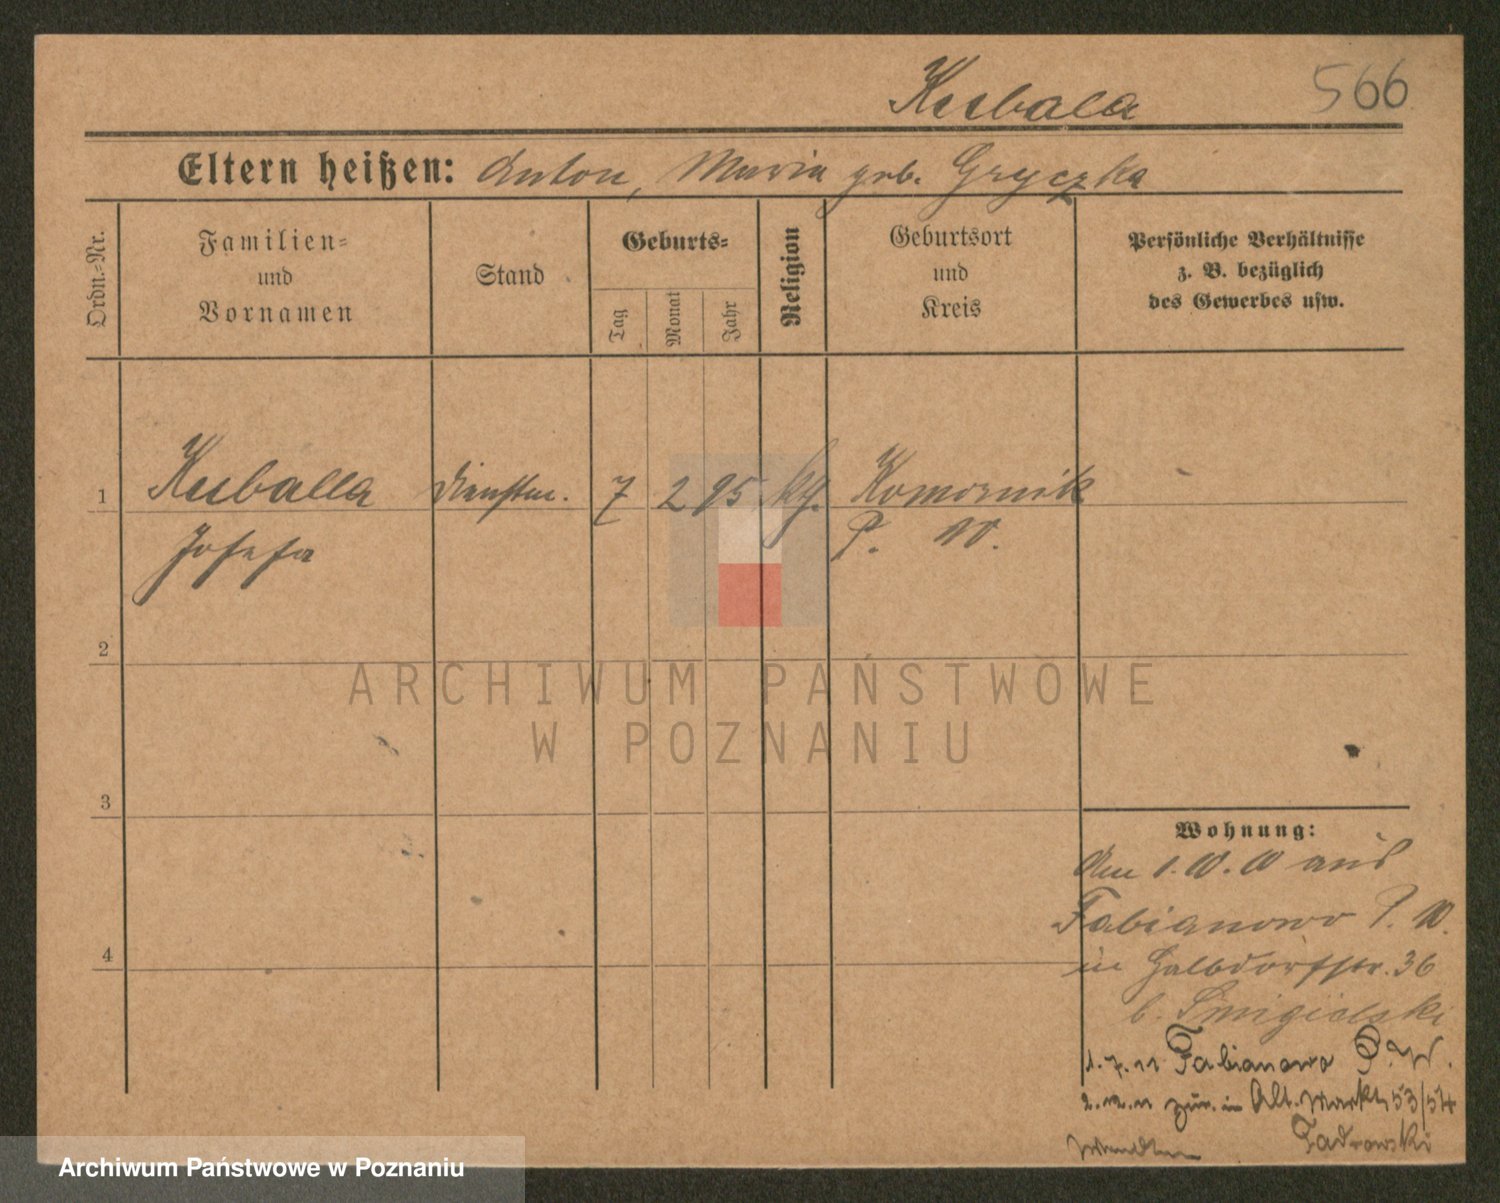 Kubala
566
Eltern heißen: Anton, Maria geb. Gryczka
Ordn.-Nr.
Familien- und Vornamen
Stand
Geburts-
Tag
Monat
Jahr
Religion
Geburtsort und Kreis
Persönliche Verhältnisse
z. B. bezüglich
des Gewerbes usw.
1
Kuballa
Dienstm.
7
2
95
kth.
Komornik
Josefa
P. W.
2
3
4
Wohnung:
Am 1.10.10 aus
Fabianowo P. W.
in Halbdorfstr. 36
b. Smigielski
1.7.11 Fabianowo P. W.
2.12.11 zur. in Alt. Markt 53/54
Zadrowski
ARCHIWUM PAŃSTWOWE
W POZNANIU
Archiwum Państwowe w Poznaniu